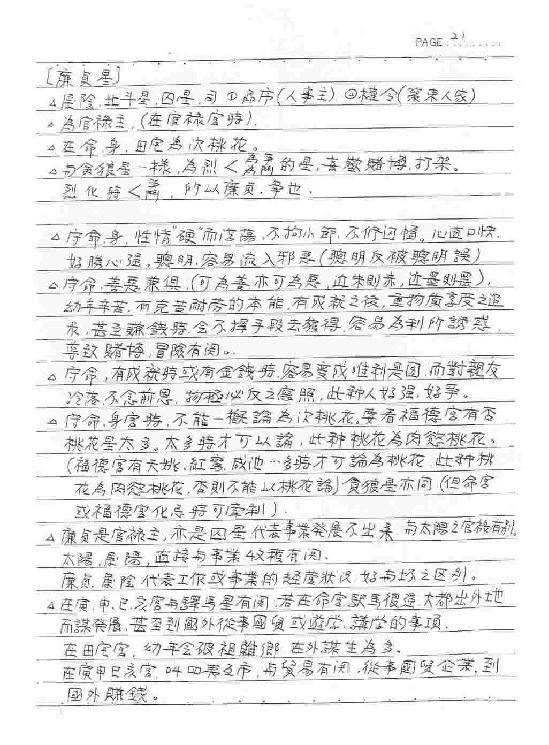 PAGE 21
[廉貞星]
△屬陰,北斗星,囚星,司①品序(人事主)②權令(築東人緣)
△為官祿主,(在官祿宮時).
△在命,身,田宅為次桃花。
△与貪狼星一樣,為烈<的星,喜歡賭博,打架。
烈化時<,所以廉貞,爭也.
△守命,身,性情"硬"而陰陽,不拘小節,不修边幅。心直口快.
好勝心強,聰明,容易流入邪惡(聰明反被聰明誤)
△守命,善惡兼俱,(可為善亦可為惡,近朱則赤,近墨則黑),
幼年辛苦,有克苦耐勞的本能,有成就之後,重物質享受之追
求,甚至賺錢時,会不擇手段去獲得,容易為利所誘惑.
尊致賭博,冒險有関。
△守命,有成就時或有金錢時,容易變成唯利是圖,而對親友
冷落不念前恩,物極必反之應照,此种人好强,好爭。
△守命,身宮時,不能一概論為次桃花。要看福德宮有否
桃花星太多。太多時才可以論,此种桃花為肉慾桃花。
(福德宮有天姚,紅鸞,咸池…多時才可論為桃花,此种桃
花為肉慾桃花,否則不能以桃花論)貪狼星亦同(但命宮
或福德宮化忌時可牽制).
△廉貞是官祿主,亦是囚星,代表事業発展不出來,与太陽之官祿有別,
太陽,屬陽,直接与事業权有関.
廉貞,屬陰,代表工作或事業的経営狀况,好与坏之区別。
△在寅,申,巳,亥宮与驛馬星有関,若在命宮,馱馬很遠,大都出外地
而謀発展,甚至到國外從事國貿或遊学,講学的事項.
在田宅宮,幼年会破祖離鄉,在外謀生為多.
在寅申巳亥宮,04四棄支市,与貿易有関,從事國貿企業,到
國外賺錢。